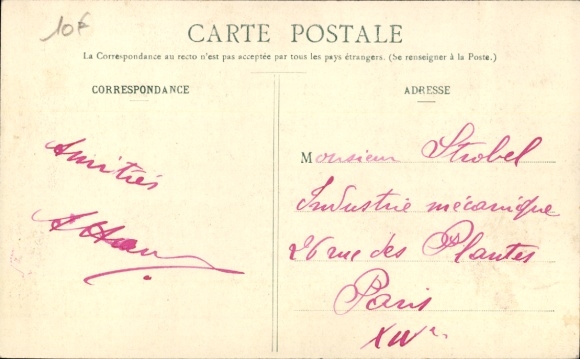 10F
CARTE POSTALE
La Correspondance au recto n'est pas acceptée par tous les pays étrangers. (Se renseigner à la Poste.)
CORRESPONDANCE
Amitiés
ADRESSE
Monsieur Strobel
Industrie mécanique
26 rue des Plantes
Paris
XIVe